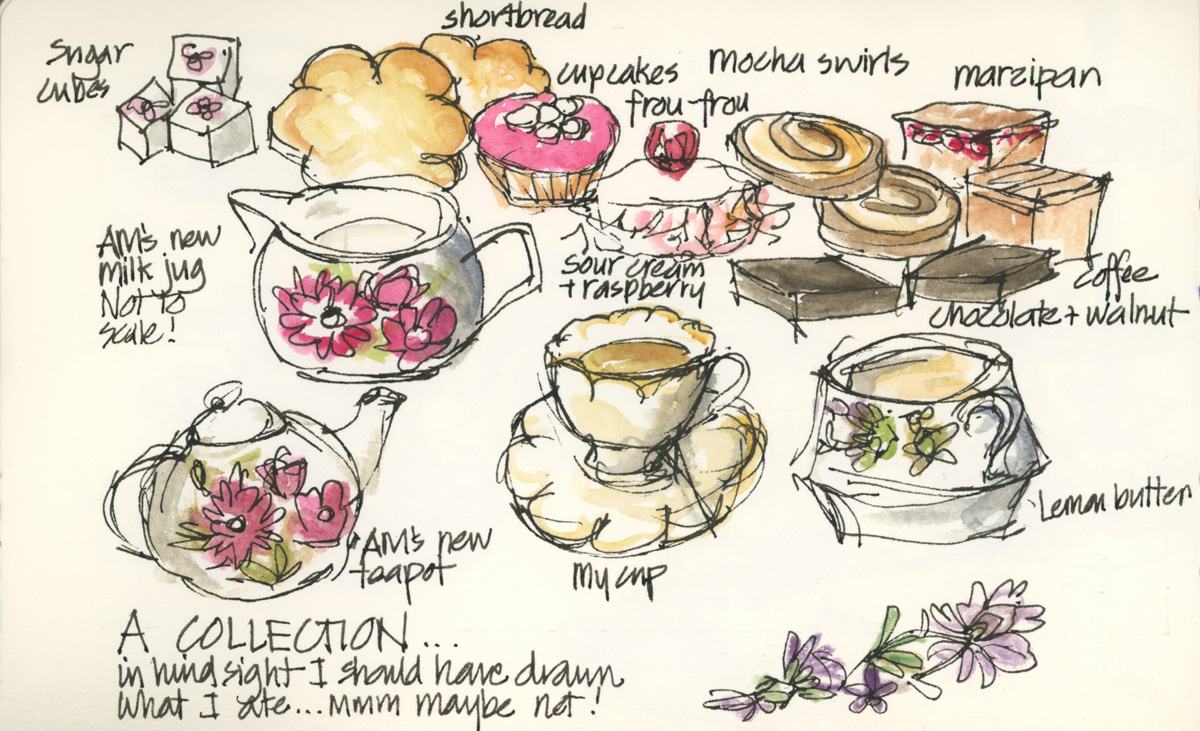 shortbread
sugar
cubes
cupcakes
frou-frou
mocha swirls
marzipan
AM's new
milk jug
Not to
scale!
sour cream
+ raspberry
coffee
chocolate + walnut
Lemon butter
AM's new
teapot
My cup
A COLLECTION...
in hindsight I should have drawn
what I ate... mmm maybe not!